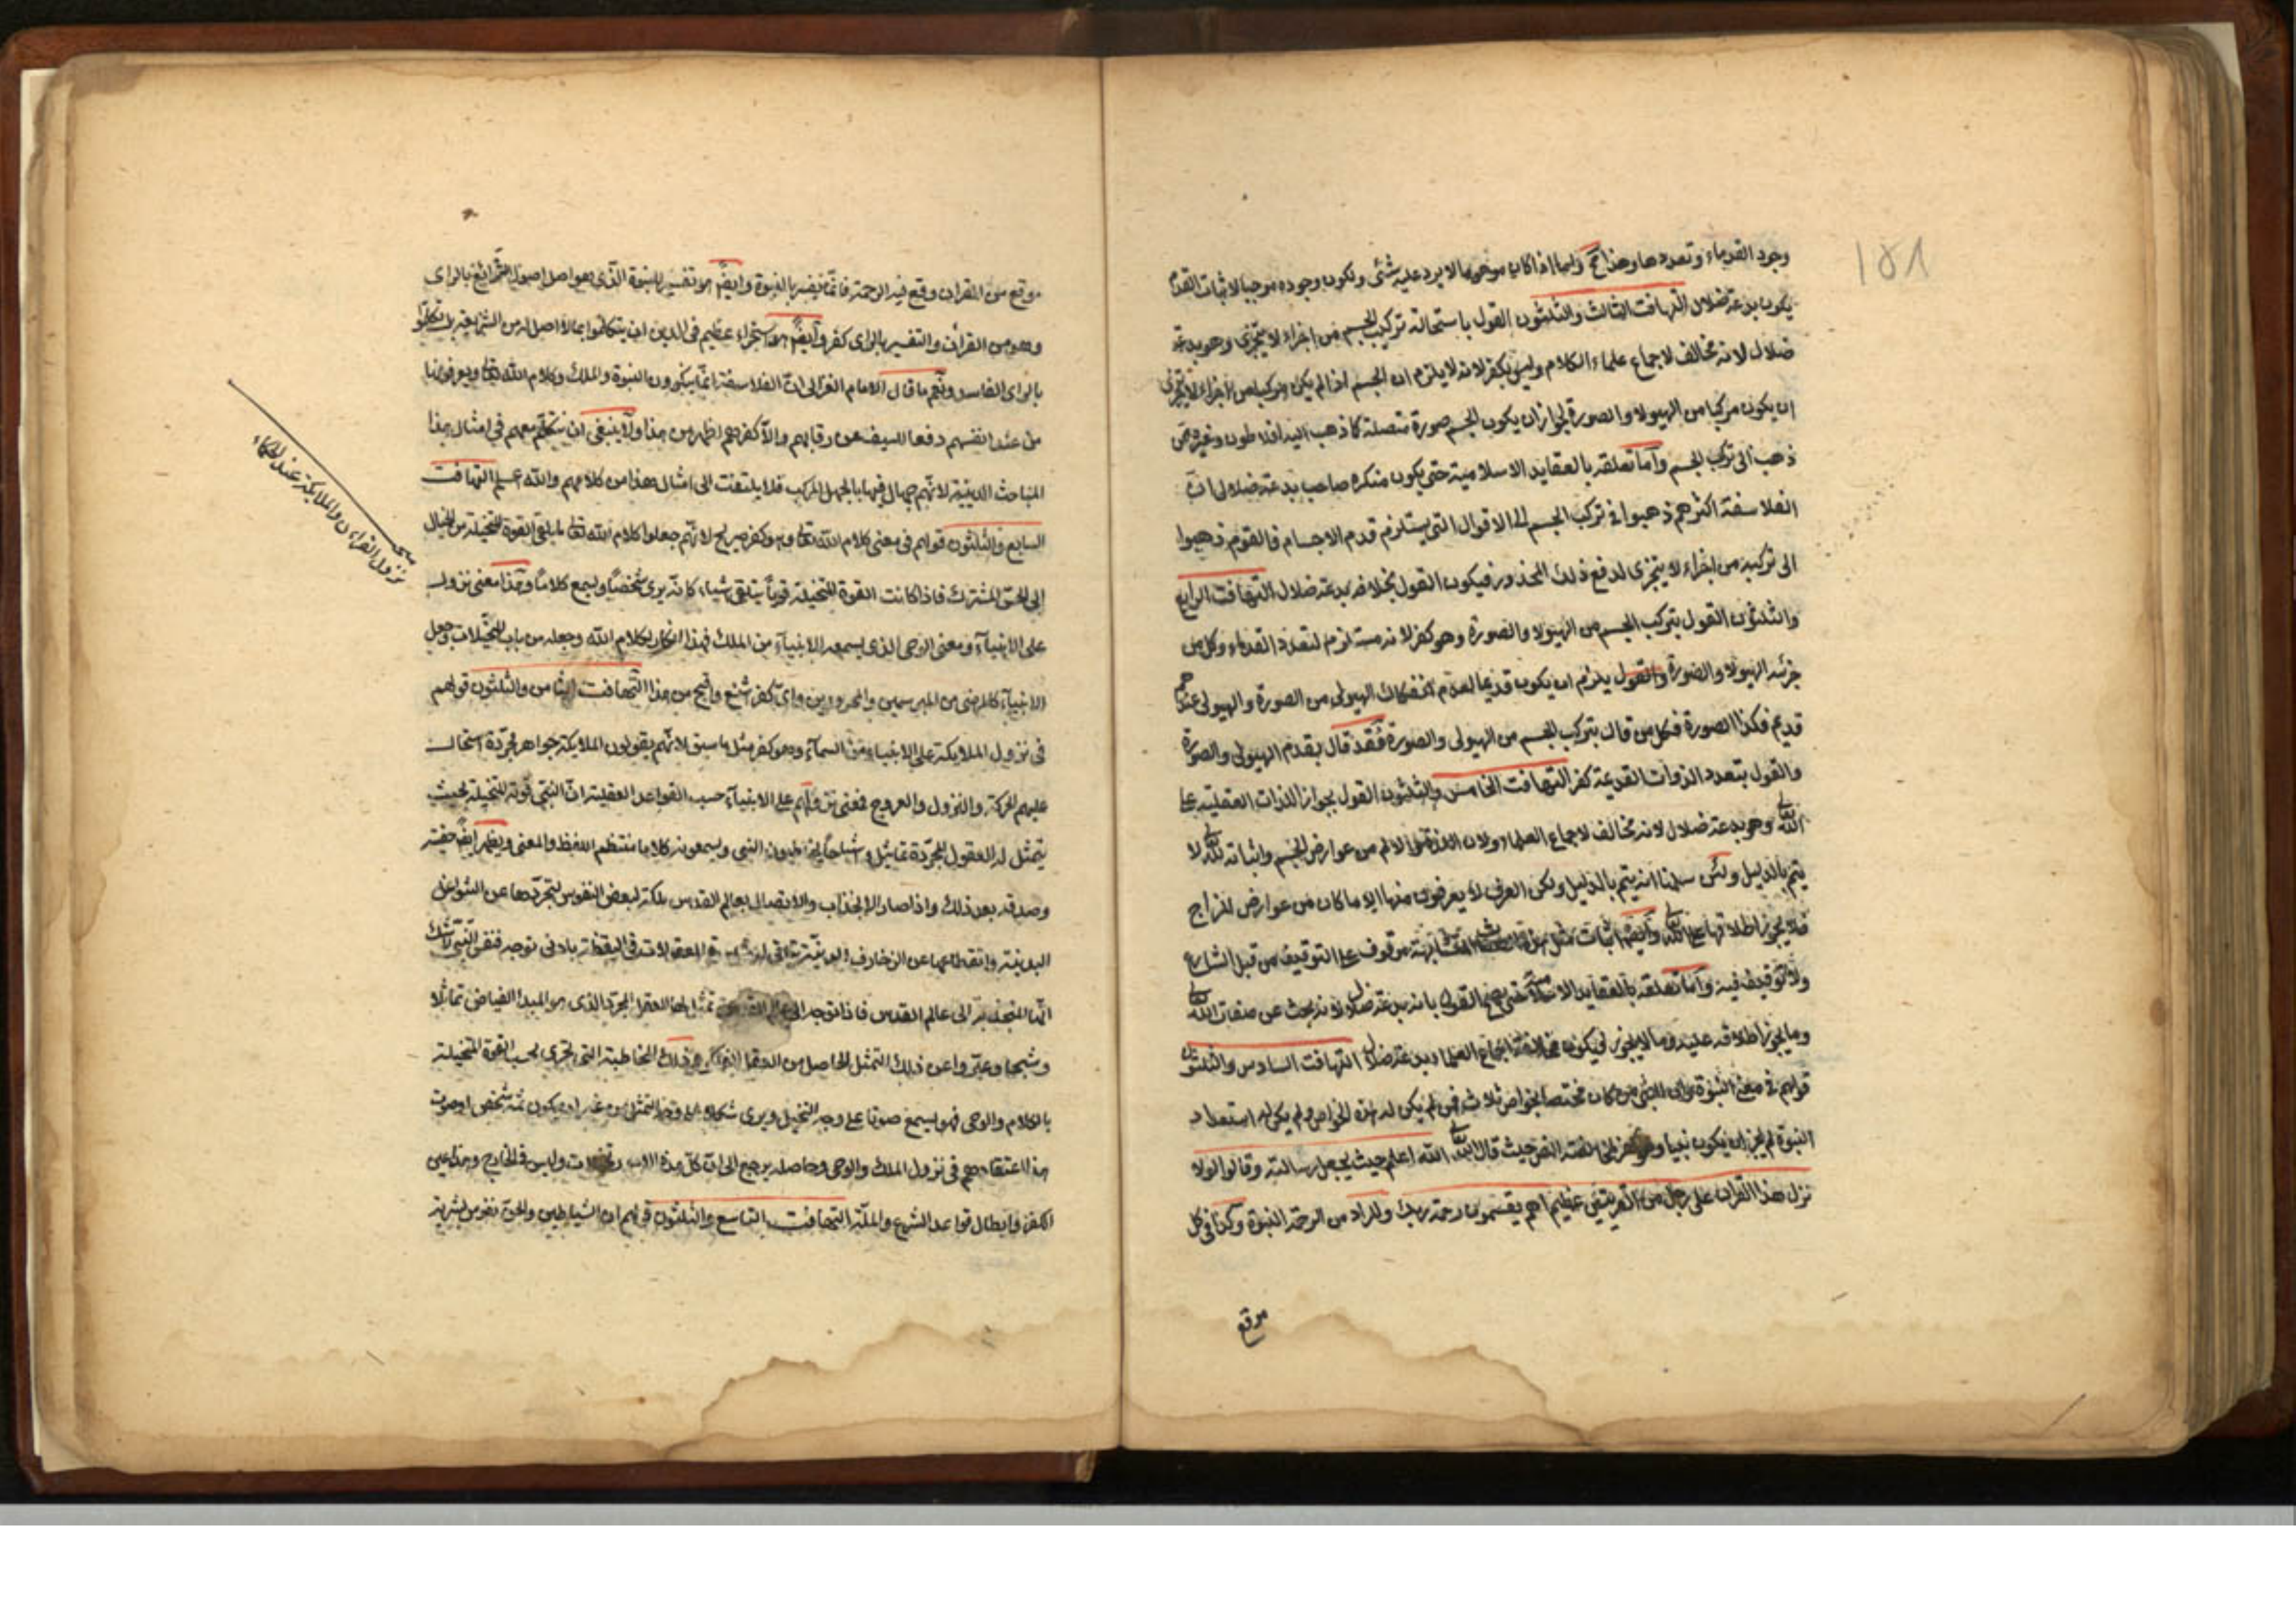 ١٥١
وجود القدماء وتعددها وهذا كما اذا كان موهوما لا يرد عليه شئ ويكون وجوده موجبا لاثبات القدم
يكون بدعة ضلال التهافت الثالث والثلثون القول باستحالة تركيب الجسم من اجزاء لا يتجزى وهو بدعة
ضلال لانه مخالف لاجماع علماء الكلام وليس بكفر لانه لا يلزم ان الجسم اذا لم يكن مركبا من اجزاء لا يتجزى
ان يكون مركبا من الهيولا والصورة لجواز ان يكون الجسم صورة متصلة كما ذهب اليه افلاطون وغيره ممن
ذهب الى تركب الجسم واما تعلقه بالعقايد الاسلامية حتى يكون منكره صاحب بدعة ضلال ان
الفلاسفة اكثرهم ذهبوا في تركب الجسم الى الاقوال التي يستلزم قدم الاجسام فالقوم ذهبوا
الى تركبه من اجزاء لا يتجزى لدفع ذلك المحذور فيكون القول بخلافه بدعة ضلال التهافت الرابع
والثلثون القول بتركب الجسم من الهيولا والصورة وهو كفر لانه مستلزم لتعدد القدماء وكل من
جزئه الهيولا والصورة والقول يلزم ان يكون قديما لعدم انفكاك الهيولى من الصورة والهيولى عندهم
قديم فكذا الصورة فكل من قال بتركب الجسم من الهيولى والصورة فقد قال بقدم الهيولى والصورة
والقول بتعدد الذوات القديمة كفر التهافت الخامس والثلثون القول بجواز اللذات العقلية على
الله تعالى وهو بدعة ضلال لانه مخالف لاجماع العلماء ولان اللذة والالم من عوارض الجسم واثباته لله تعالى لا
يتم بالدليل ولئن سلمنا انه يتم بالدليل ولكن العرف لا يعرفون منها الا ما كان من عوارض المزاج
فلا يجوز اطلاقها على الله تعالى وايضا اثبات مثل هذه المتشابهة موقوف على التوقيف من قبل الشارع
ولا توقيف فيه واما تعلقه بالعقايد الاسلامية حتى يصح القول بانه بدعة ضلال لانه بحث عن صفات الله تعالى
وما يجوز اطلاقه عليه وما لا يجوز فيكون مخالفة اجماع العلماء بدعة ضلال التهافت السادس والثلثون
قولهم في معنى النبوة وان النبي من كان مختصا بخواص ثلاث فمن لم يكن له هذه الخواص ولم يكن له استعداد
النبوة لم يجز ان يكون نبيا وهو كفر لمخالفته النص حيث قال الله تعالى الله اعلم حيث يجعل رسالته وقالوا لولا
نزل هذا القران على رجل من القريتين عظيم اهم يقسمون رحمة ربك والمراد من الرحمة النبوة وكذا في كل
موقع
موقع من القران وقع فيه الرحمة فانما يفسر بالنبوة وايضا هو تفسير للنبوة الذي هو اصل اصول الشرائع بالراى
وهو من القرآن والتفسير بالراى كفر وايضا هو استجراء عظيم في الدين ان يتكلموا بما لا اصل له من الشرايعة بل تكلموا
بالراى الفاسد ونعم ما قال الامام الغزالى ان الفلاسفة انما ينكرون النبوة والملك وكلام الله تعالى ويعرفونها
من عند انفسهم دفعا للسيف عن رقابهم والا كفرهم اظهر من هذا ولا ينبغى ان يتكلم معهم في امثال هذا
المباحث الدينية لانهم جهال فيها بالجهل المركب فلا يلتفت الى امثال هذا من كلامهم والله اعلم التهافت
السابع والثلثون قولهم في معنى كلام الله تعالى وهو كفر صريح لانهم جعلوا كلام الله تعالى ما يلقى القوة المتخيلة من الخيال
الى الحس المشترك فاذا كانت القوة المتخيلة قوياً يتلقى شياء كانه يرى شخصياً ويسمع كلاماً وهذا معنى نزول
على الانبياء ومعنى الوحى الذي يسمعه الانبياء من الملك فهذا انكار لكلام الله وجعله من باب التخيلات وجعل
الانبياء كالمرضى من المبرسمين والمحرورين واى كفر اشنع واقبح من هذا التهافت الثامن والثلثون قولهم
في نزول الملايكة على الانبياء من السماء وهو كفر مثل ما سبق لانهم يقولون الملايكة جواهر مجردة استحالت
عليهم الحركة والنزول والعروج فمعنى نزولهم على الانبياء حسب القواعد العقلية ان النبي قوته المتخيلة بحيث
يتمثل له العقول المجردة تماثيل واشباحاً يخاطبون النبي ويسمعونه كلاما منتظم اللفظ والمعنى ويظهر ايضا حقيته
وصدقه بعد ذلك واذا صار الانجذاب والاتصال بعالم القدس ملكة لبعض النفوس لتجردها عن الشواغل
البدنية وانقطاعها عن الزخارف الدنية المعقولات في اليقظة بادنى توجه فنفس النبي لا شك
انها المنجذبة الى عالم القدس فاذا توجه الى عالم القدس تمثل لها العقل المجرد الذي هو المبدا الفياض تماثلا
وشبحا وعبروا عن ذلك التمثل الحاصل من العقل الفعال وذلك المخاطبة التي تجرى بحسب القوة المتخيلة
بالكلام والوحى فهو يسمع صوتا على وجه التخيل ويرى شكلا على وجه التمثل من غير ان يكون ثمة شخص او صوت
هذا اعتقادهم في نزول الملك والوحى وحاصله يرجع الى ان كل هذه وليس في الخارج وهذا عين
الكفر وابطال قواعد الشرع والملة التهافت التاسع والثلثون قولهم ان الشياطين والجن نفوس بشرية
نزول القران والملايكة عند الحكماء